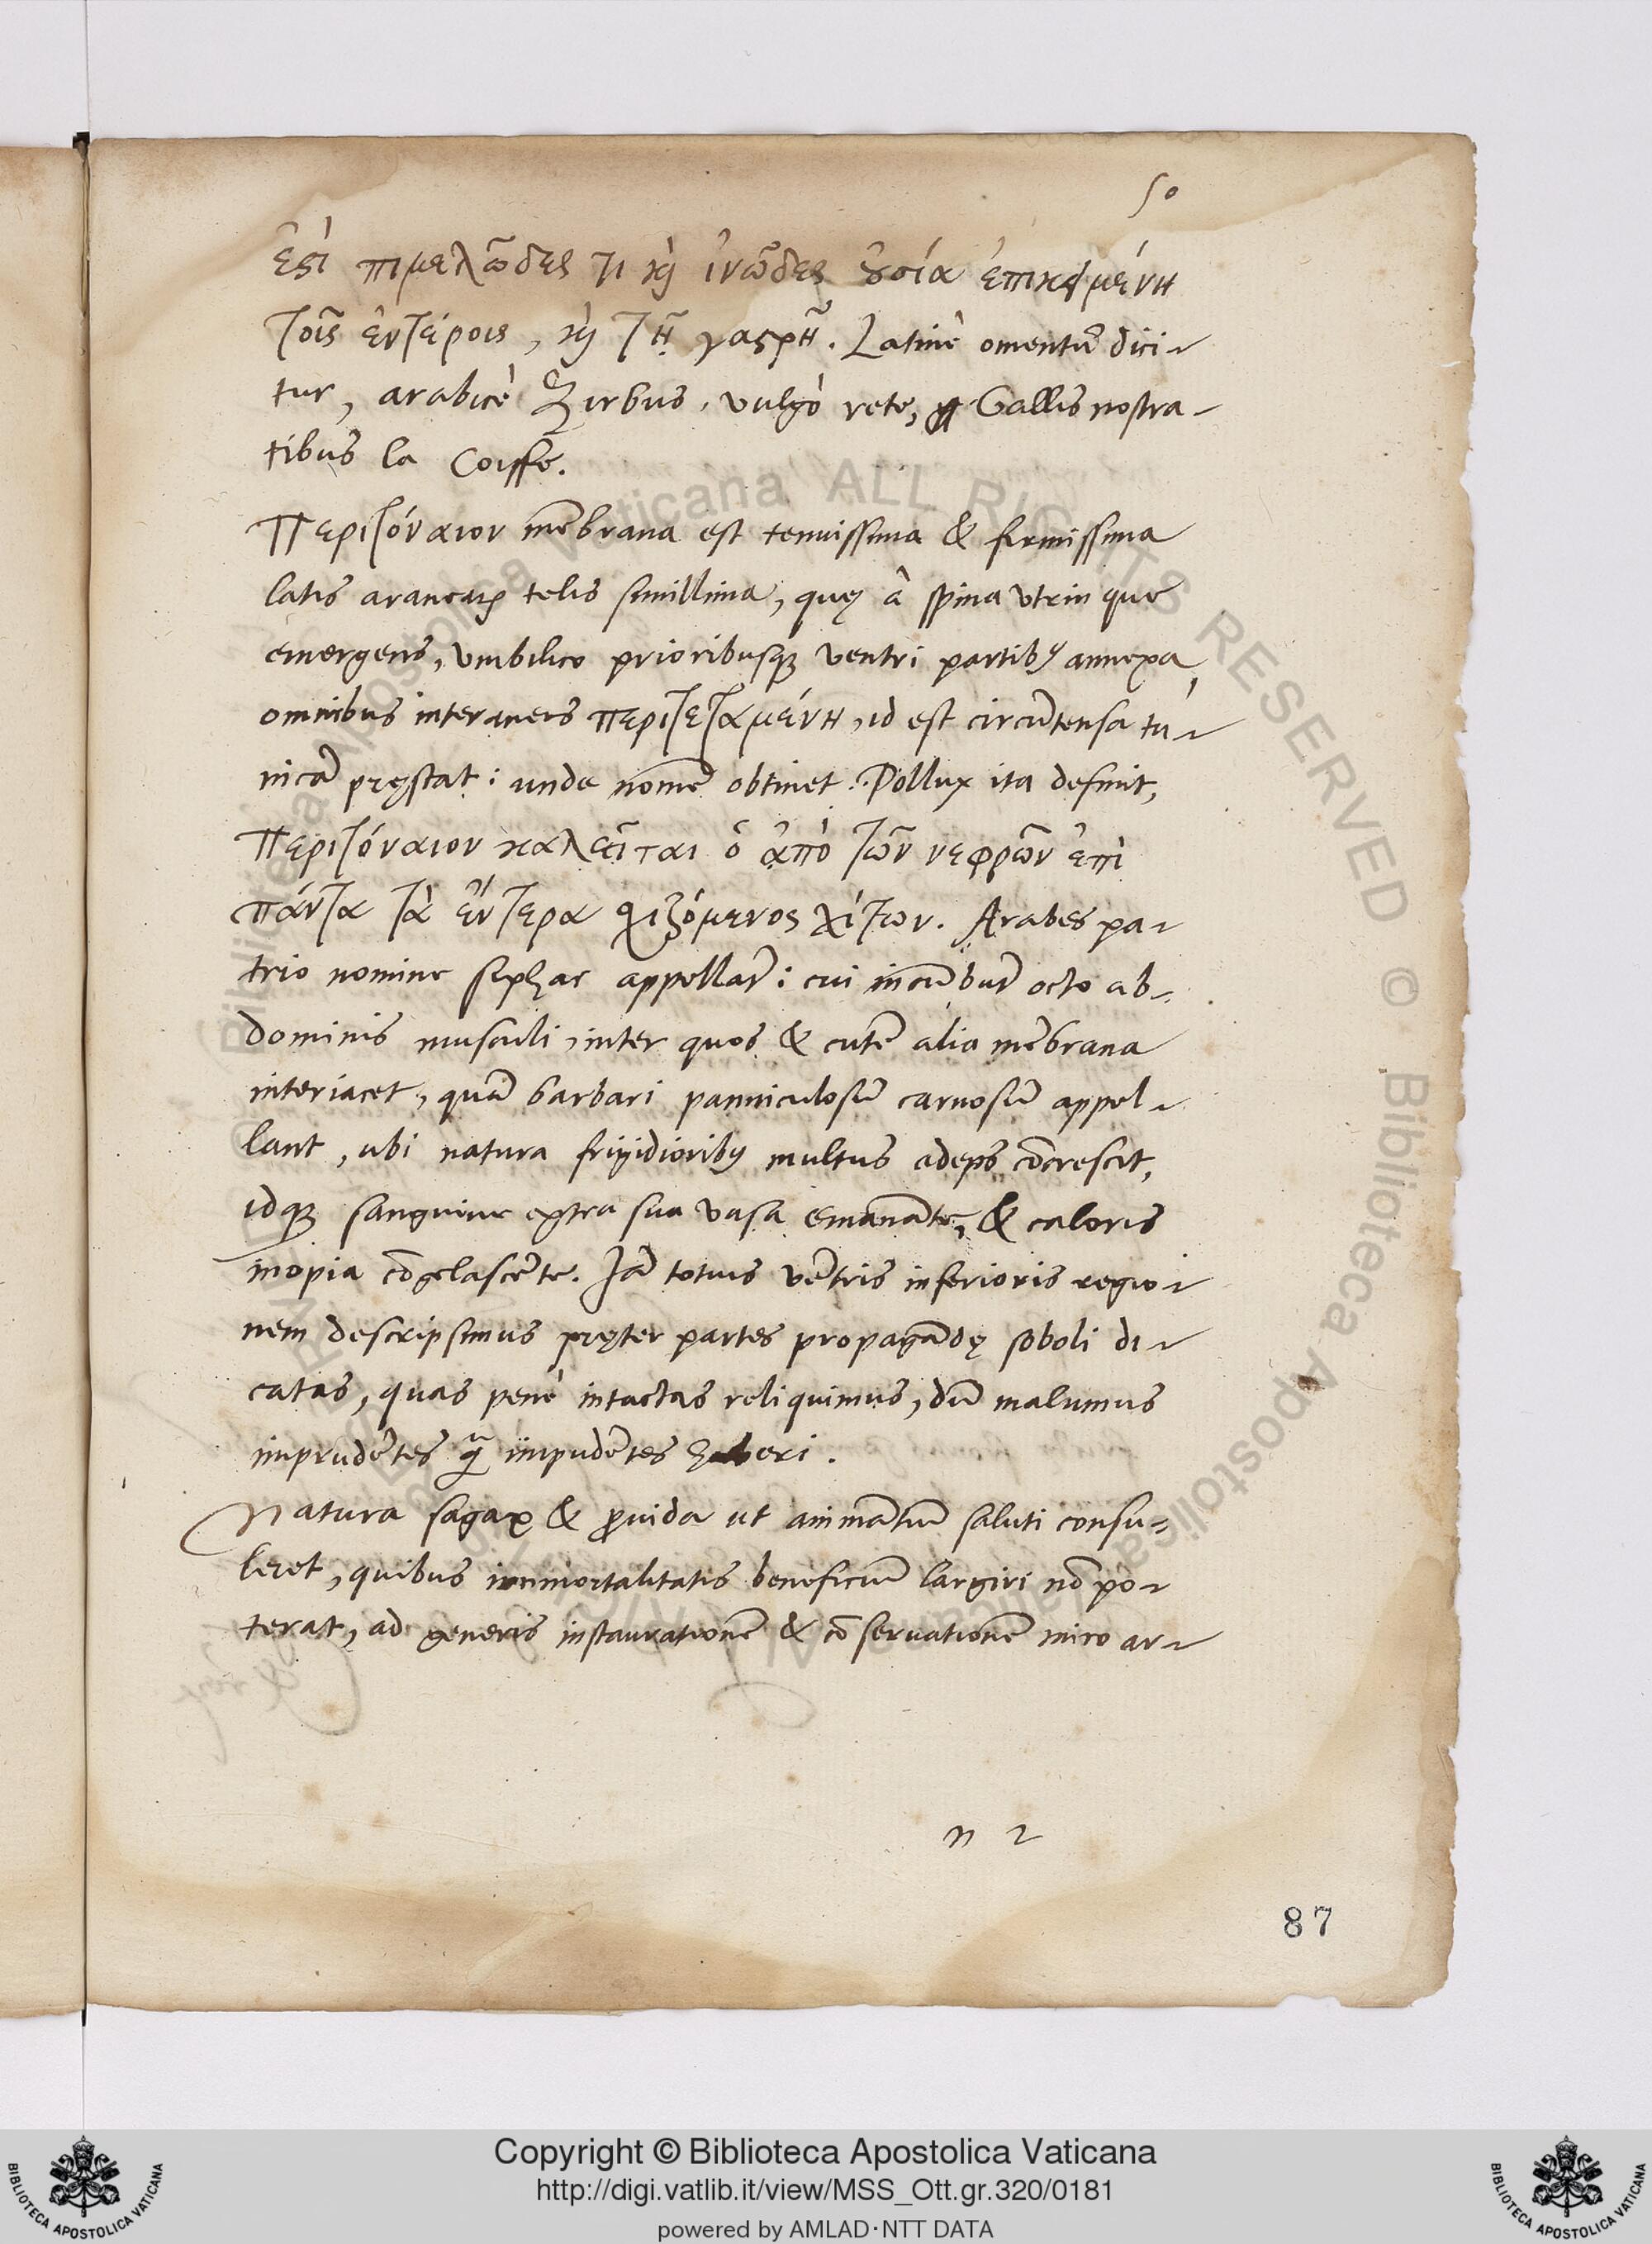 50
ἐςὶ πιμελῶδες τι κὴ ἰνῶδες ȣ̓σία ἐπικειμένη
τοῖς ἐντέροις, κὴ τῇ γαςρὴ. Latinè omentũ dici-
tur, arabicè Zirbus, vulgò rete, Gallis nostra-
tibus la Coiffe.
Περιτόναιον mẽbrana est tenuissima & firmissima
latis aranearũ telis simillima, quę à spina vtrinque
emergens, vmbilico prioribusq; ventri partibꝰ annexa,
omnibus interaneis περιτεταμένη, id est circũtensa tu-
nicã pręstat: unde nomẽ obtinet. Pollux ita definit,
Περιτόναιον καλεῖται ὁ ἀπὸ τῶν νεφρῶν ἐπὶ
πάντα τὰ ἔντερα ῥιζόμενος χίτων. Arabes pa-
trio nomine siphac appellãt: cui incũbũt octo ab-
dominis musculi, inter quos & cutẽ alia mẽbrana
interiacet, quã barbari panniculosũ carnosũ appel-
lant, ubi natura frigidioribꝰ multus adeps cõcrescit,
idq; sanguine extra sua vasa emanãte, & caloris
inopia cõgelascẽte. Iã totius vẽtris inferioris regio-
nem descripsimus pręter partes propagãdę soboli di-
catas, quas penè intactas reliquimus, dũ malumus
imprudẽtes q̃ impudẽtes haberi.
Natura sagax & ꝓuida ut animãtiũ saluti consu-
leret, quibus immortalitatis beneficiũ largiri nõ po-
terat, ad generis instaurationẽ & cõseruationẽ miro ar-
n 2
87
Copyright © Biblioteca Apostolica Vaticana
http://digi.vatlib.it/view/MSS_Ott.gr.320/0181
powered by AMLAD·NTT DATA